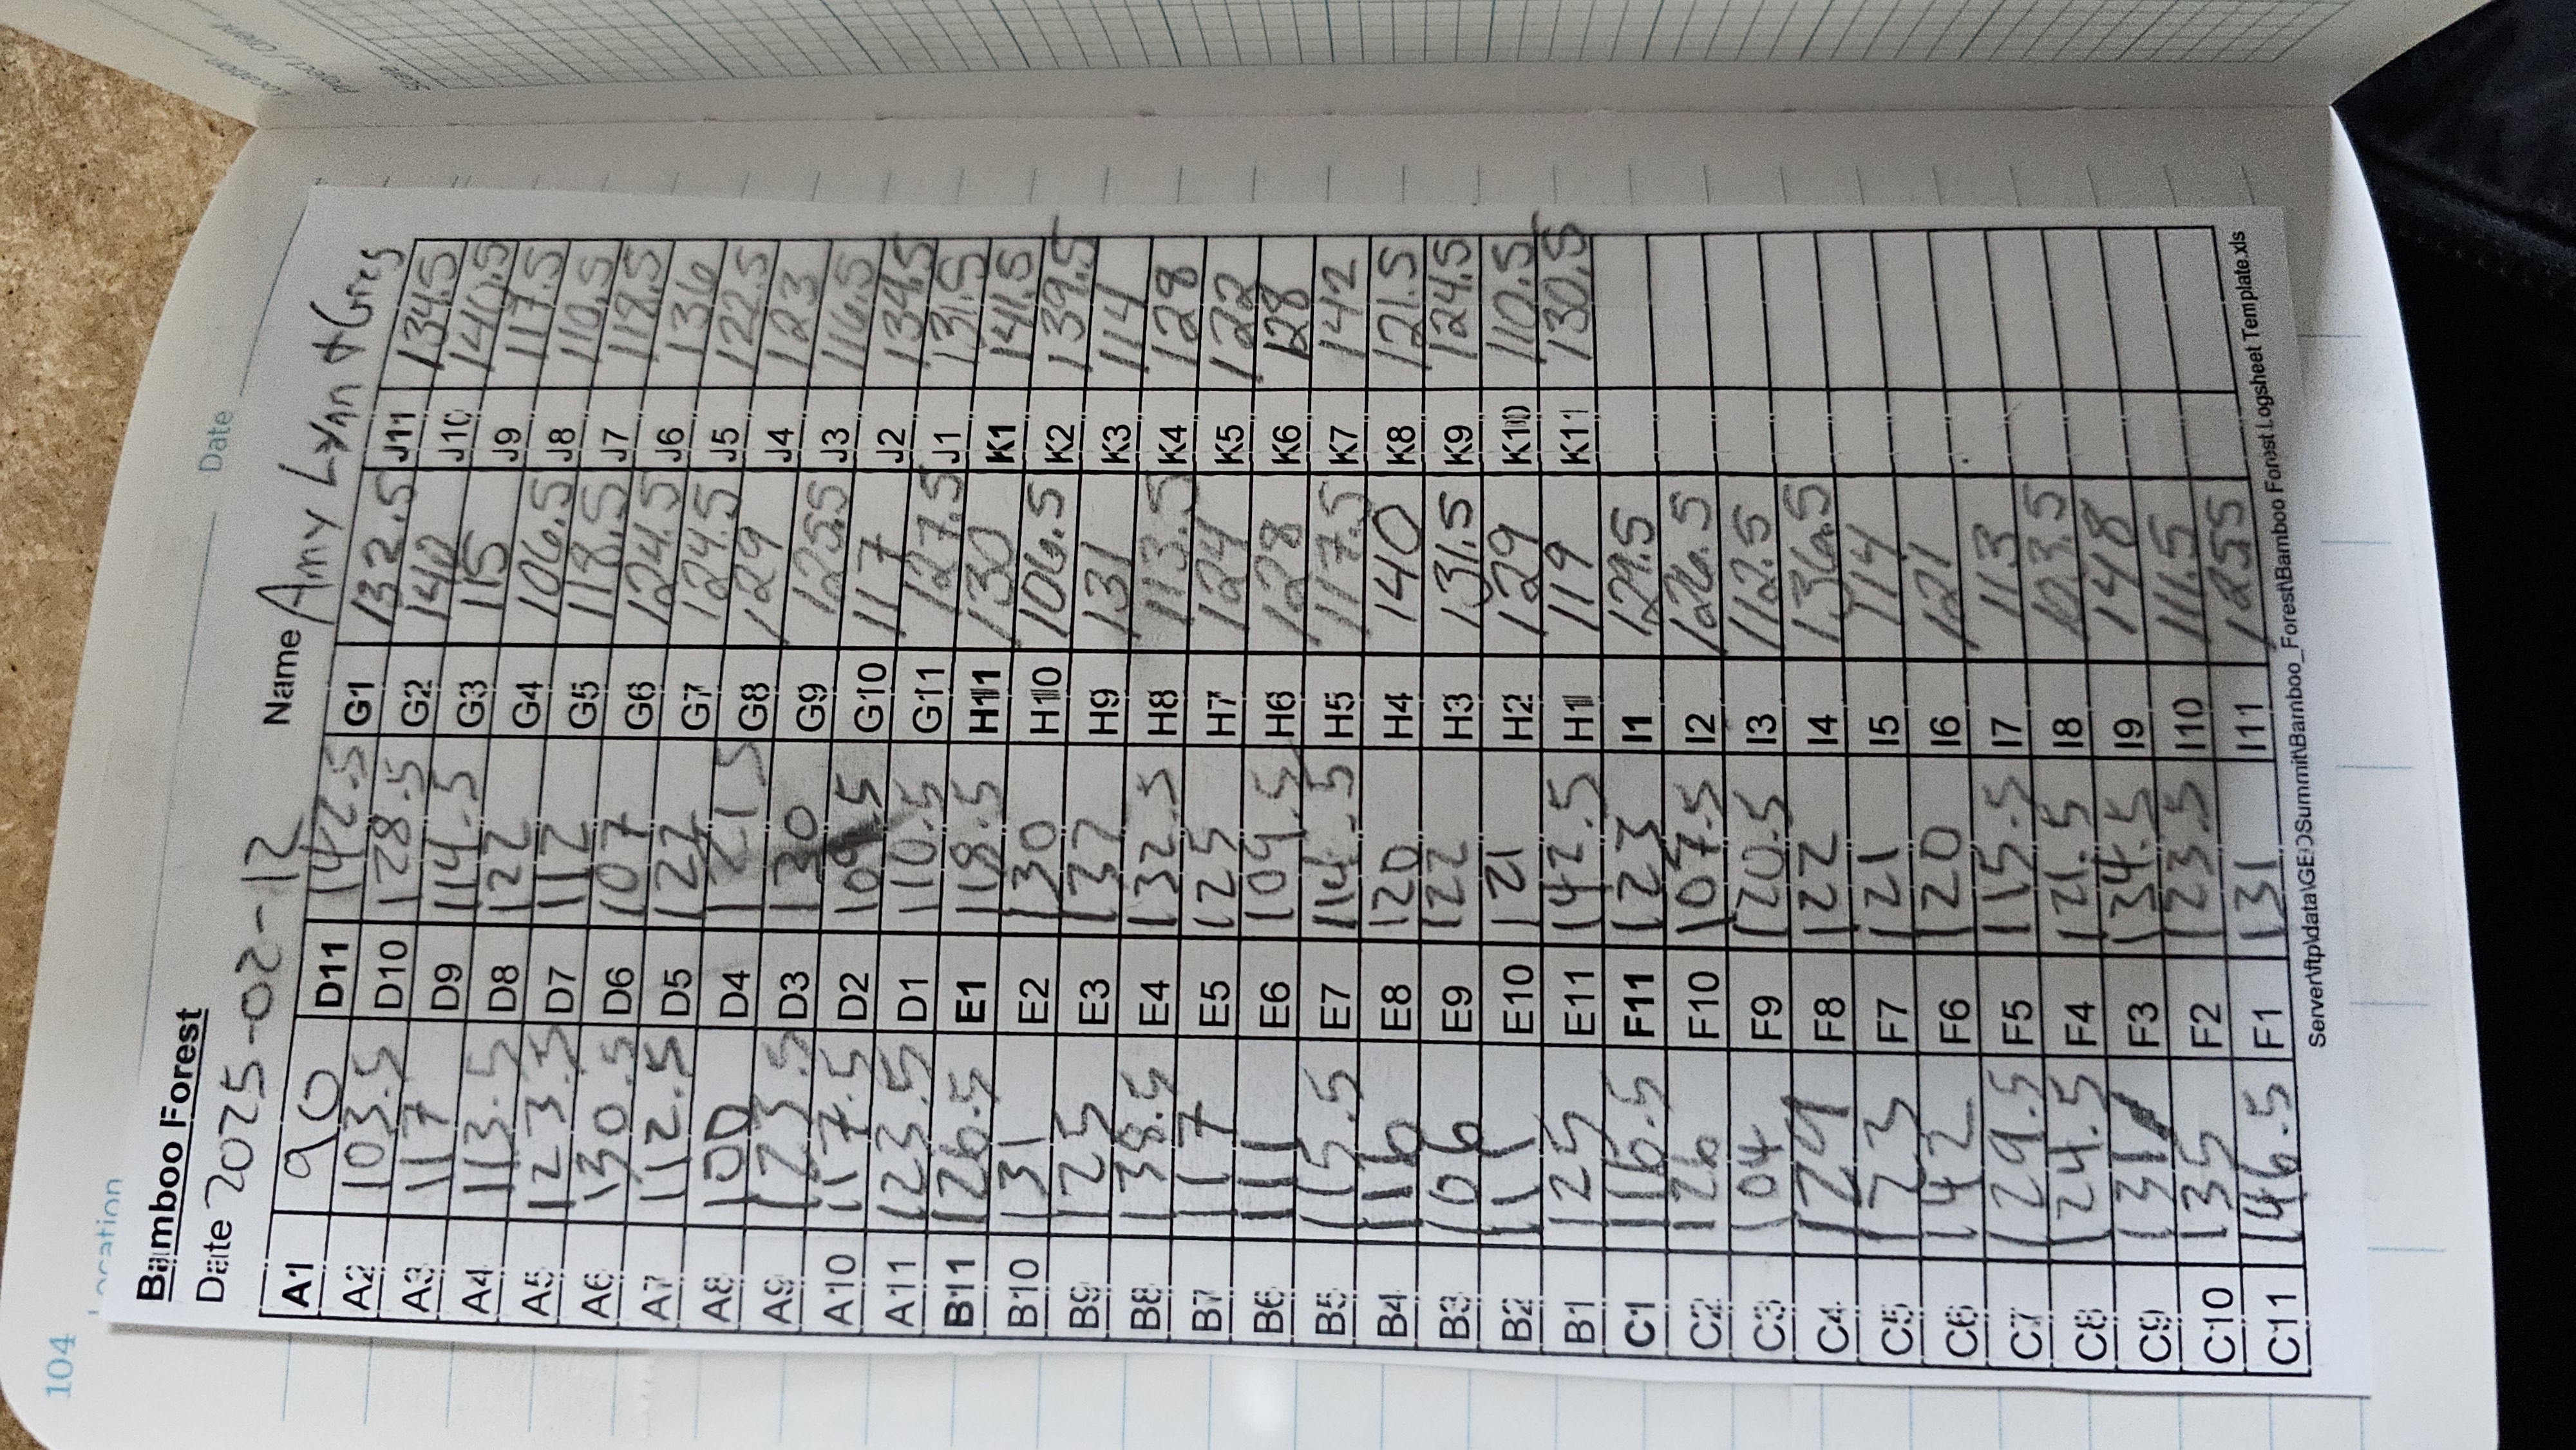 104
Location
Date
Bamboo Forest
Date 2025-02-12 Name Amy Lynn
A1 90 D11 142.5 G1 132.5 J11 134.5
A2 103.5 D10 128.5 G2 140 J10 140.5
A3 117 D9 114.5 G3 115 J9 117.5
A4 113.5 D8 122 G4 106.5 J8 110.5
A5 123.5 D7 112 G5 118.5 J7 118.5
A6 130.5 D6 107 G6 124.5 J6 136
A7 112.5 D5 122 G7 124.5 J5 122.5
A8 100 D4 121.5 G8 129 J4 123
A9 123.5 D3 130 G9 125.5 J3 116.5
A10 117.5 D2 109.5 G10 117 J2 134.5
A11 123.5 D1 110.5 G11 127.5 J1 131.5
B11 126.5 E1 118.5 H11 130 K1 141.5
B10 131 E2 130 H10 106.5 K2 139.5
B9 125 E3 132 H9 131 K3 114
B8 138.5 E4 132.5 H8 113.5 K4 128
B7 117 E5 125 H7 124 K5 122
B6 111 E6 109.5 H6 128 K6 128
B5 115.5 E7 114.5 H5 117.5 K7 142
B4 116 E8 120 H4 140 K8 121.5
B3 106 E9 122 H3 131.5 K9 124.5
B2 111 E10 121 H2 129 K10 110.5
B1 125 E11 142.5 H1 119 K11 130.5
C1 116.5 F11 123 I1 129.5
C2 126 F10 107.5 I2 126.5
C3 104 F9 120.5 I3 112.5
C4 129 F8 122 I4 136.5
C5 123 F7 121 I5 114
C6 142 F6 120 I6 121
C7 129.5 F5 115.5 I7 113
C8 124.5 F4 121.5 I8 123.5
C9 131 F3 134.5 I9 148
C10 135 F2 123.5 I10 111.5
C11 146.5 F1 131 I11 125.5
Server\ftp\data\GEOSummit\Bamboo_Forest\Bamboo Forest Logsheet Template.xls
Project / Client
Scale